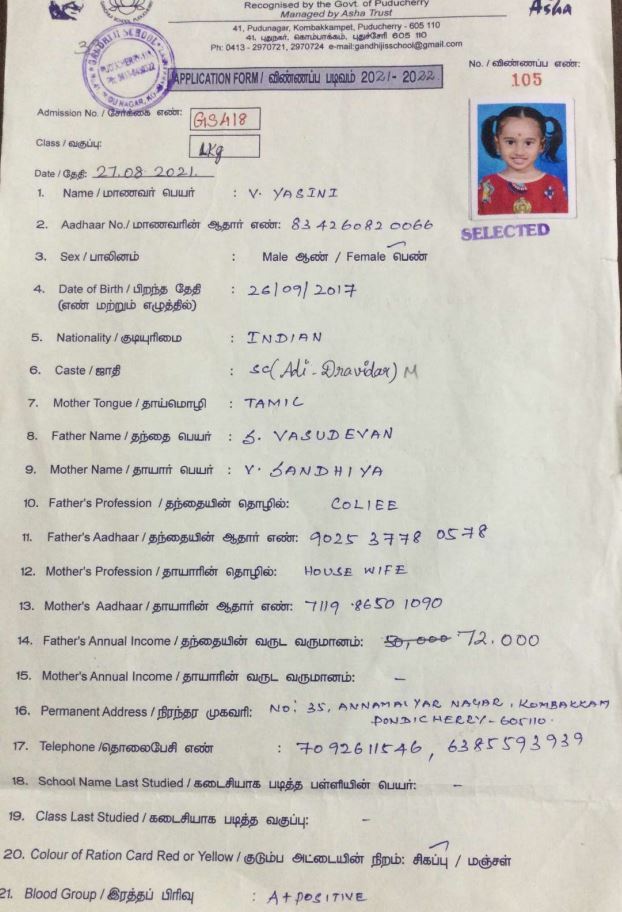 Recognised by the Govt. of Puducherry
Managed by Asha Trust
Asha
41, Pudunagar, Kombakkampet, Puducherry - 605 110
41, புதுநகர், கொம்பாக்கம், புதுச்சேரி 605 110
Ph: 0413 - 2970721, 2970724 e-mail:gandhijisschool@gmail.com
GANDHIJI SCHOOL
APPLICATION FORM / விண்ணப்ப படிவம் 2021- 2022
No. / விண்ணப்ப எண்:
105
Admission No. / சேர்க்கை எண்: GS418
Class / வகுப்பு: LKg
Date / தேதி: 27.08 2021.
SELECTED
1. Name / மாணவர் பெயர் : V. YASINI
2. Aadhaar No./ மாணவரின் ஆதார் எண்: 83 4260820066
3. Sex / பாலினம் : Male ஆண் / Female பெண்
4. Date of Birth / பிறந்த தேதி : 26/09/2017
(எண் மற்றும் எழுத்தில்)
5. Nationality / குடியுரிமை : INDIAN
6. Caste / ஜாதி : SC (Adi - Dravidar) M
7. Mother Tongue / தாய்மொழி : TAMIL
8. Father Name / தந்தை பெயர் : S. VASUDEVAN
9. Mother Name / தாயார் பெயர் : V. SANDHIYA
10. Father's Profession / தந்தையின் தொழில்: COLIEE
11. Father's Aadhaar / தந்தையின் ஆதார் எண்: 9025 3778 0578
12. Mother's Profession / தாயாரின் தொழில்: HOUSE WIFE
13. Mother's Aadhaar / தாயாரின் ஆதார் எண்: 7119 8650 1090
14. Father's Annual Income / தந்தையின் வருட வருமானம்: 50,000 72.000
15. Mother's Annual Income / தாயாரின் வருட வருமானம்: -
16. Permanent Address / நிரந்தர முகவரி: NO: 35, ANNAMALYAR NAGAR, KOMBAKKAM
PONDICHERRY - 605110.
17. Telephone /தொலைபேசி எண் : 7092611546, 6385593939
18. School Name Last Studied / கடைசியாக படித்த பள்ளியின் பெயர்: -
19. Class Last Studied / கடைசியாக படித்த வகுப்பு: -
20. Colour of Ration Card Red or Yellow / குடும்ப அட்டையின் நிறம்: சிகப்பு / மஞ்சள்
21. Blood Group / இரத்தப் பிரிவு : A+ POSITIVE